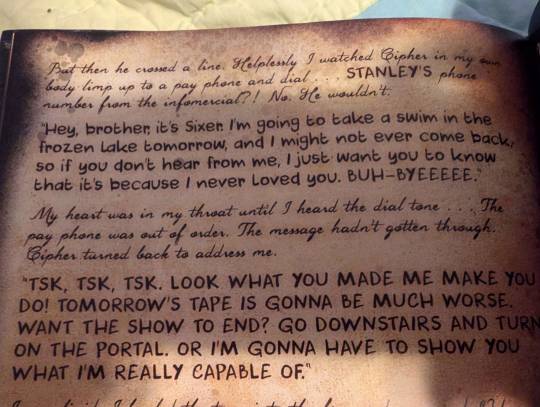 But then he crossed a line. Helplessly I watched Cipher in my own
body limp up to a pay phone and dial . . . STANLEY'S phone
number from the infomercial?! No. He wouldn't.
"Hey, brother, it's Sixer. I'm going to take a swim in the
frozen lake tomorrow, and I might not ever come back,
so if you don't hear from me, I just want you to know
that it's because I never loved you. BUH-BYEEEEE."
My heart was in my throat until I heard the dial tone . . . The
pay phone was out of order. The message hadn't gotten through.
Cipher turned back to address me.
"TSK, TSK, TSK. LOOK WHAT YOU MADE ME MAKE YOU
DO! TOMORROW'S TAPE IS GONNA BE MUCH WORSE.
WANT THE SHOW TO END? GO DOWNSTAIRS AND TURN
ON THE PORTAL. OR I'M GONNA HAVE TO SHOW YOU
WHAT I'M REALLY CAPABLE OF."